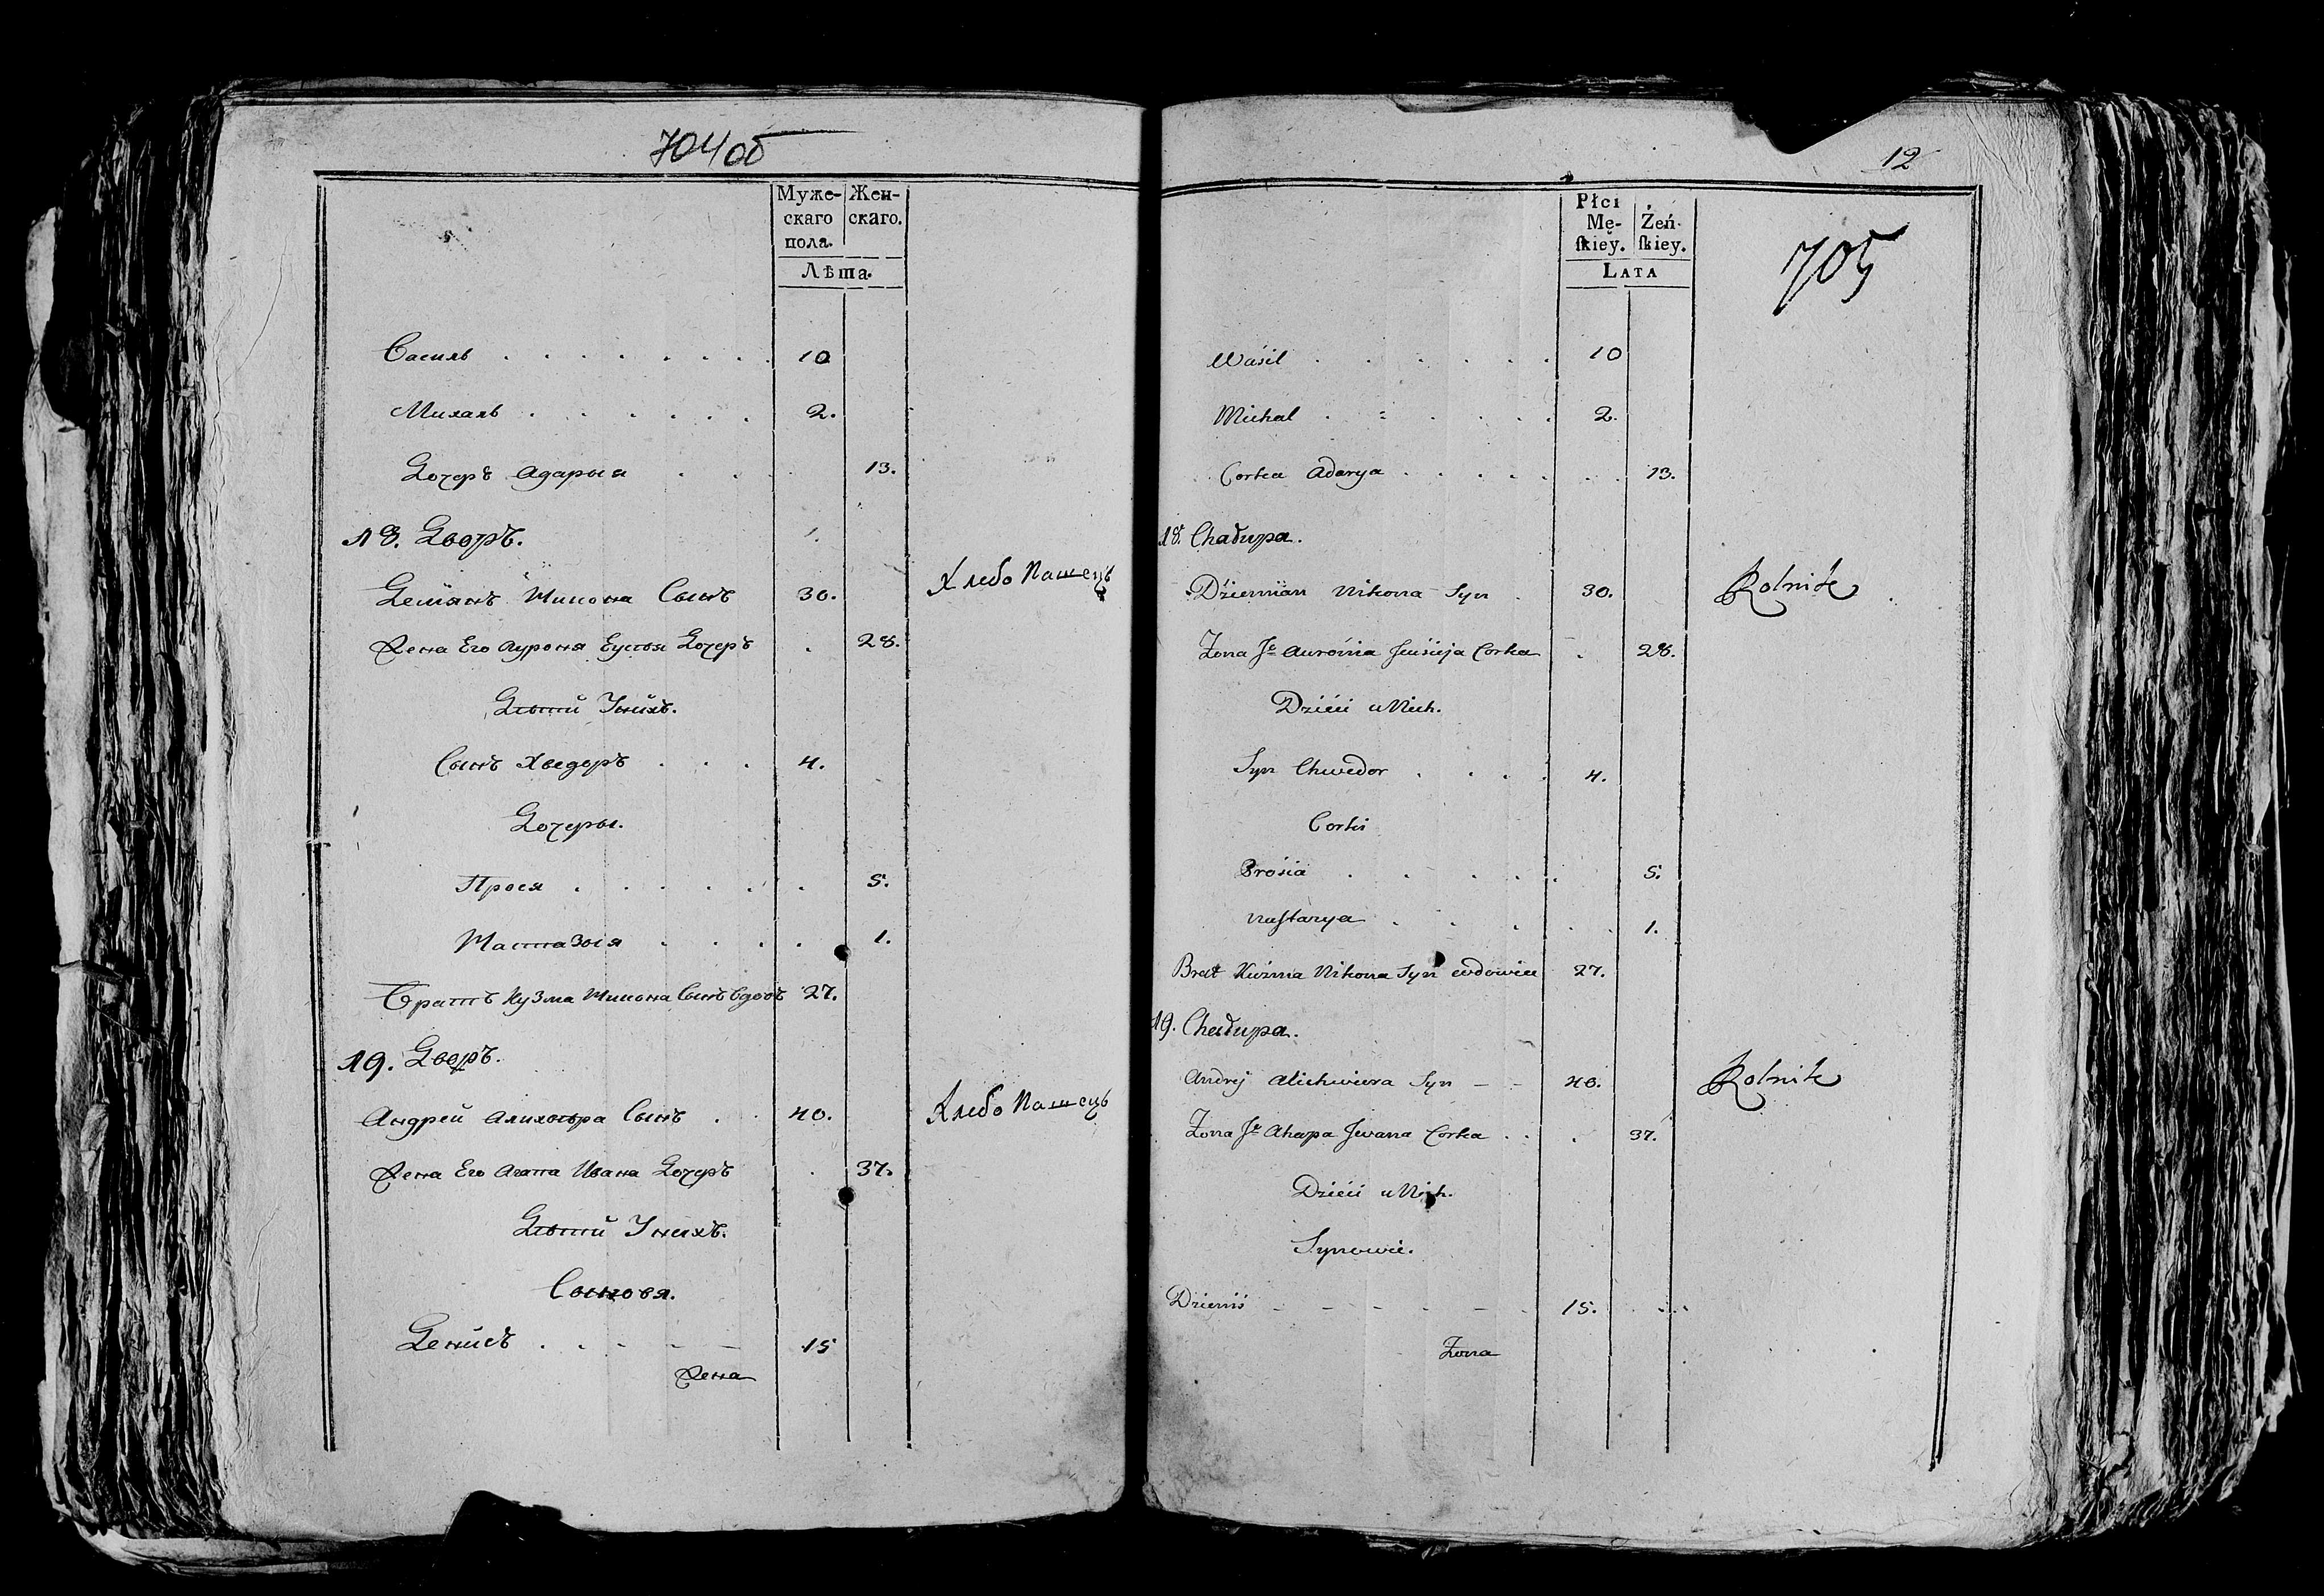 704об
Муже-
скаго
пола.
Жен-
скаго.
Лѣта.
Василь 10
Михалъ 2.
Дочеръ Адарыя 13.
18. Дворъ.
Демянъ Никона Сынъ 30. Хлебо Пашецъ
Жена Его Аурона Еусея Дочеръ 28.
Дѣти Унихъ.
Сынъ Хведоръ 4.
Дочеры.
Прося 5.
Настазыя 1.
Братъ Кузма Никона Сынъ Вдовъ 27.
19. Дворъ.
Андрей Алихвѣра Сынъ 40. Хлебо Пашецъ
Жена Его Агапа Ивана Дочеръ 37.
Дѣти Унихъ.
Сыновя.
Денисъ 15
Жена
12
Płci
Mę-
ſkiey.
Żeń-
ſkiey.
LATA
705
Waśil 10
Michal 2.
Corka Adarya 13.
18. Chałupa.
Dziemian Nikona Syn 30. Rolnik
Zona Je Auroinia Jeusieja Corka 28.
Dzieci u Nich.
Syn Chwedor 4.
Corki
Prósia 5.
Nastazya 1.
Brat Kuźma Nikona Syn wdowiec 27.
19. Chałupa.
Andrej Alichwiera Syn 40. Rolnik
Zona Je Ahapa Jwana Corka 37.
Dzieci u Nich.
Synowie.
Dzienis 15.
Zona